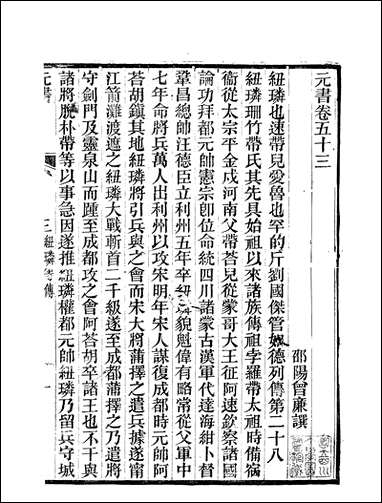 元書卷五十三
邵陽曾廉譔
紐璘也速帶兒愛魯也罕的斤劉國傑管如德列傳第二十八
紐璘珊竹帶氏其先具始祖以來諸族傳祖孛羅帶太祖時備宿
衞從太宗平金戍河南父帶荅兒從蒙哥大王征阿速欽察諸國
論功拜都元帥憲宗卽位命統四川諸蒙古漢軍代達海紺卜督
鞏昌總帥汪德臣立利州五年卒紐璘貌魁偉有略常從父軍中
七年命將兵萬人出利州以攻宋明年宋人謀復成都時元帥阿
荅胡鎭其地紐璘將引兵與之會而宋大將蒲擇之遣兵據遂甯
江箭灘渡遮之紐璘大戰斬首二千級遂至成都蒲擇之乃遣將
守劍門及靈泉山而踵至成都攻之會阿荅胡卒諸王也不干與
諸將脫朴帶等以事急因遂推紐璘權都元帥紐璘乃留兵守城
元書
三紐璘等傳
一